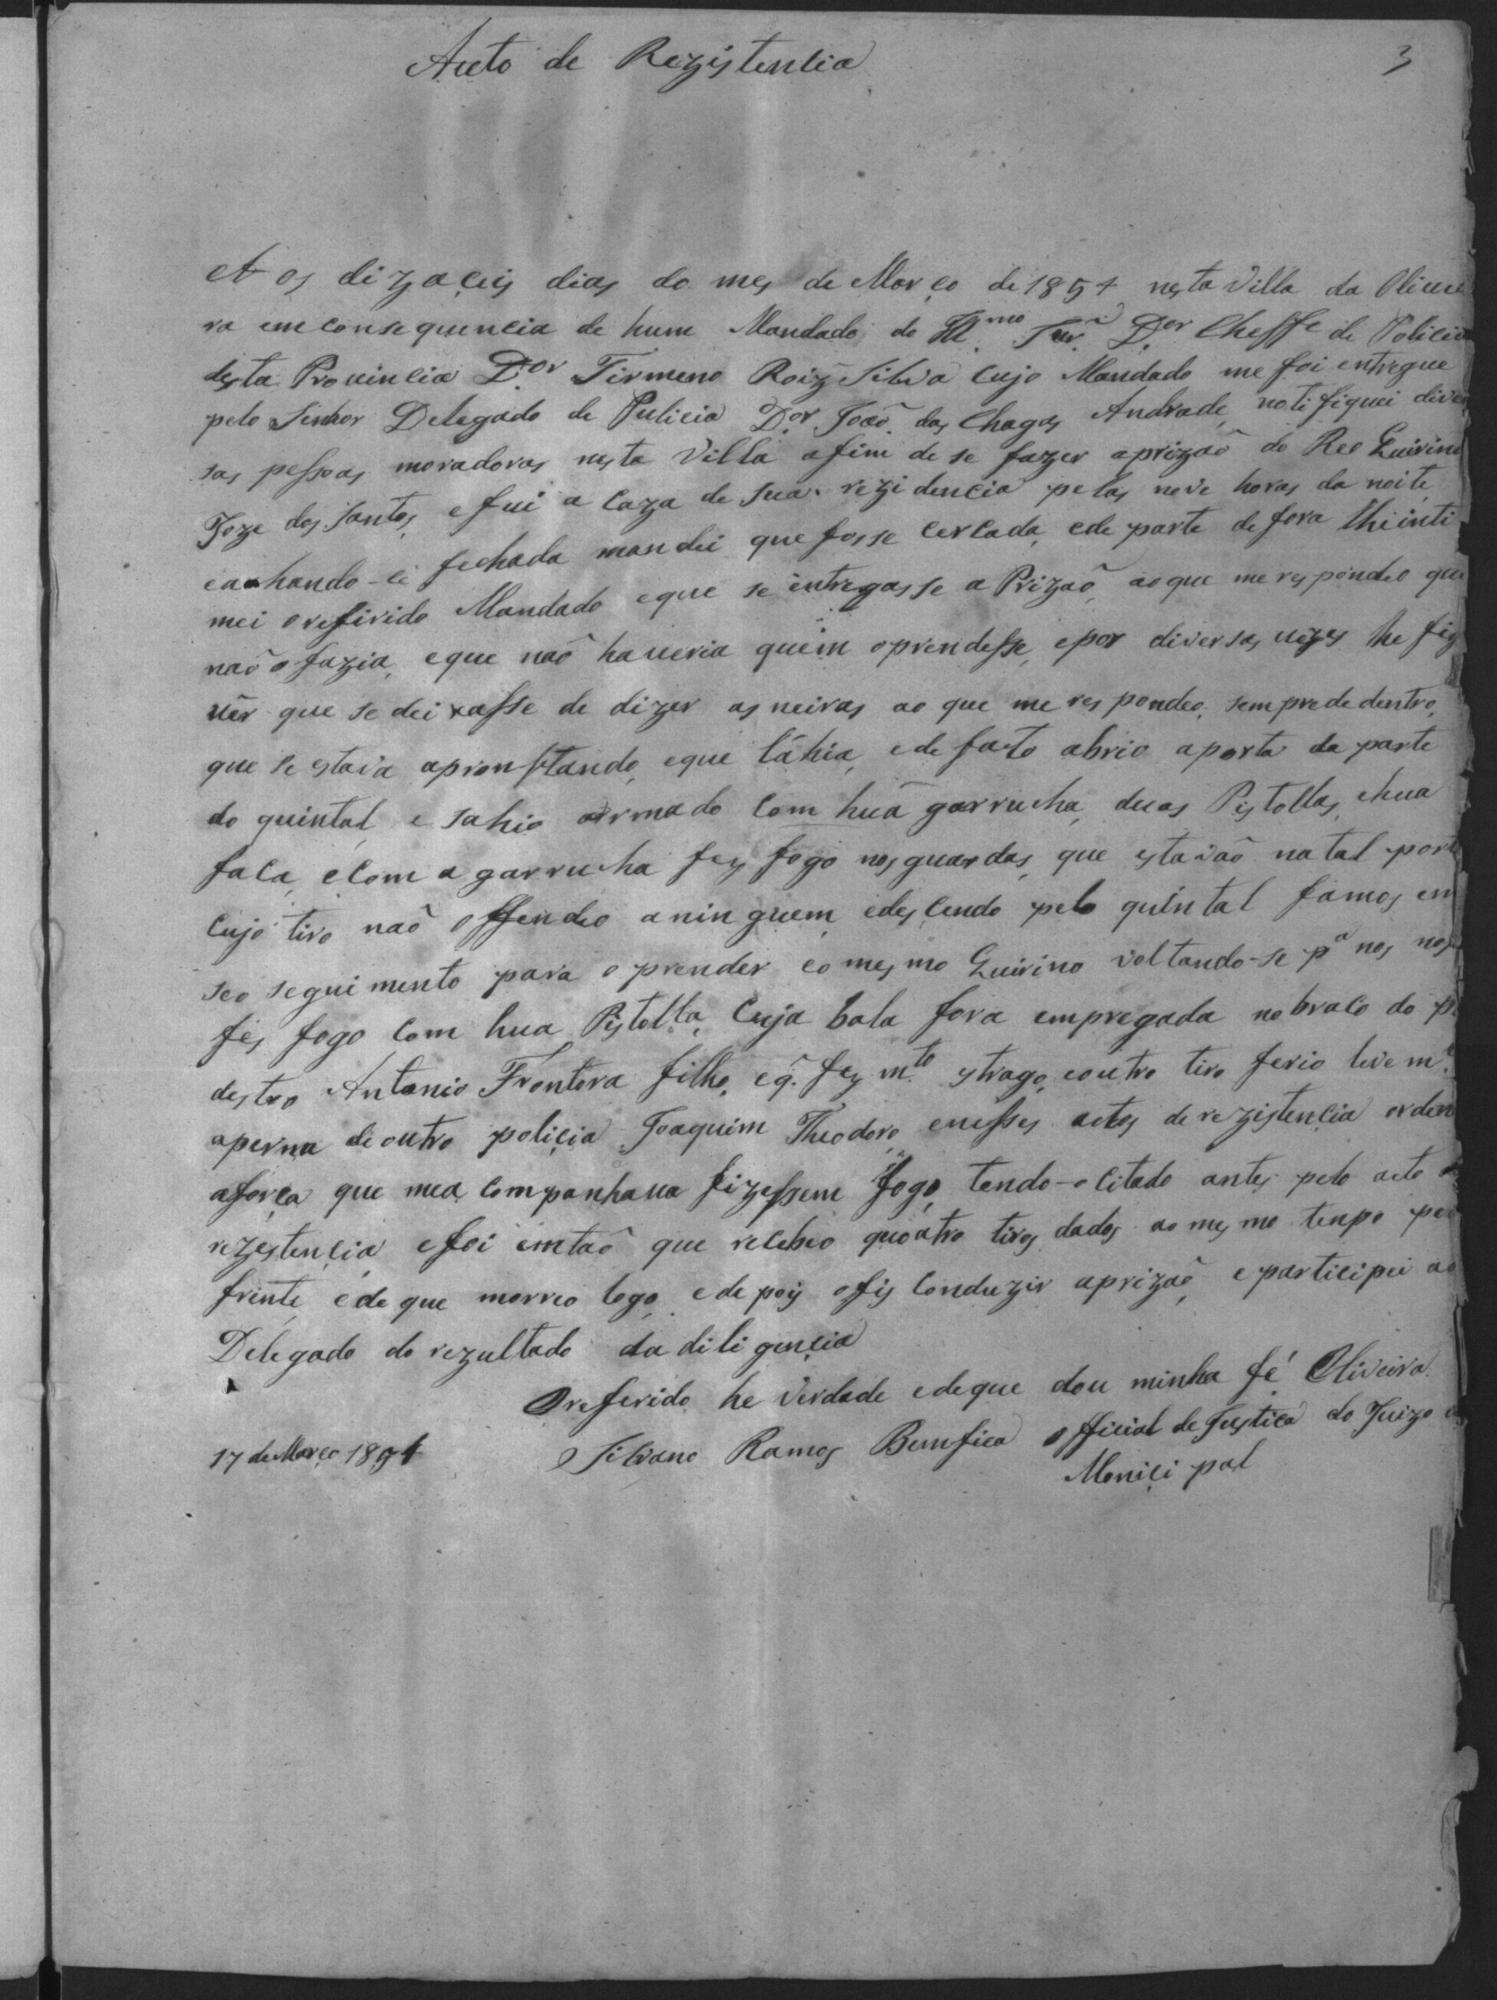 Aucto de Rezistencia
3
Aos dizaçeis dias do mes de Março de 1854 nesta Villa da Olivei
ra em consequencia de hum Mandado do Ill.mo Snr. D.or Cheffe de Policia
desta Provincia D.or Firmeno Roiz Silva cujo Mandado me foi entregue
pelo Senhor Delegado de Pulicia D.or João das Chagas Andrade, notifiquei diver
sas pessoas moradoras nesta Villa afim de se fazer aprizaõ do Reo Quirino
Joze dos Santos, e fui a caza de sua rezidencia pelas nove horas da noite
eachando-ce fechada mandei que fosse cercada, ede parte de fora lhe inti
mei oreferido Mandado eque se entregasse a Prizaõ, ao que me respondeo que
naõ ofazia, eque naõ haveria quem oprendesse, epor diversas vezes lhe fiz
vêr que se deixasse de dizer asneiras ao que me respondeo, sempre de dentro,
que se estava apronstando, eque láhia, ede facto abrio aporta da parte
do quintal, e sahio armado com huã garrucha, duas Pistollas, ehua
faca, ecom a garrucha fez fogo nos guardas, que estavaõ na tal port
cujo tiro naõ offendeo aninguem, edescendo pelo quintal famos em
seo seguimento para oprender eo mesmo Quirino voltando-se p.a nos nos
fes fogo com hua Pistolla, cuja bala fora empregada nobraco do p
destro Antonio Frontora filho, eq. fez m.to strago, eoutro tiro ferio levem.e
aperna de outro policia Joaquim Theodoro, enesses actos derezistencia orden
aforca que mea companhava fizessem fogo, tendo-o citado antes pelo acto
rezestencia, efoi emtaõ que recebeo quoatro tiros dados ao mesmo tenpo pe
frente, ede que morreo logo, edepois ofis conduzir aprizaõ, eparticipei ao
Delegado do rezultado da diligencia
Oreferido he verdade edeque dou minha fé Oliveira
17 de Março 1854 Silvano Ramos Bemfica official de Justica do Juizo
Moniçipal